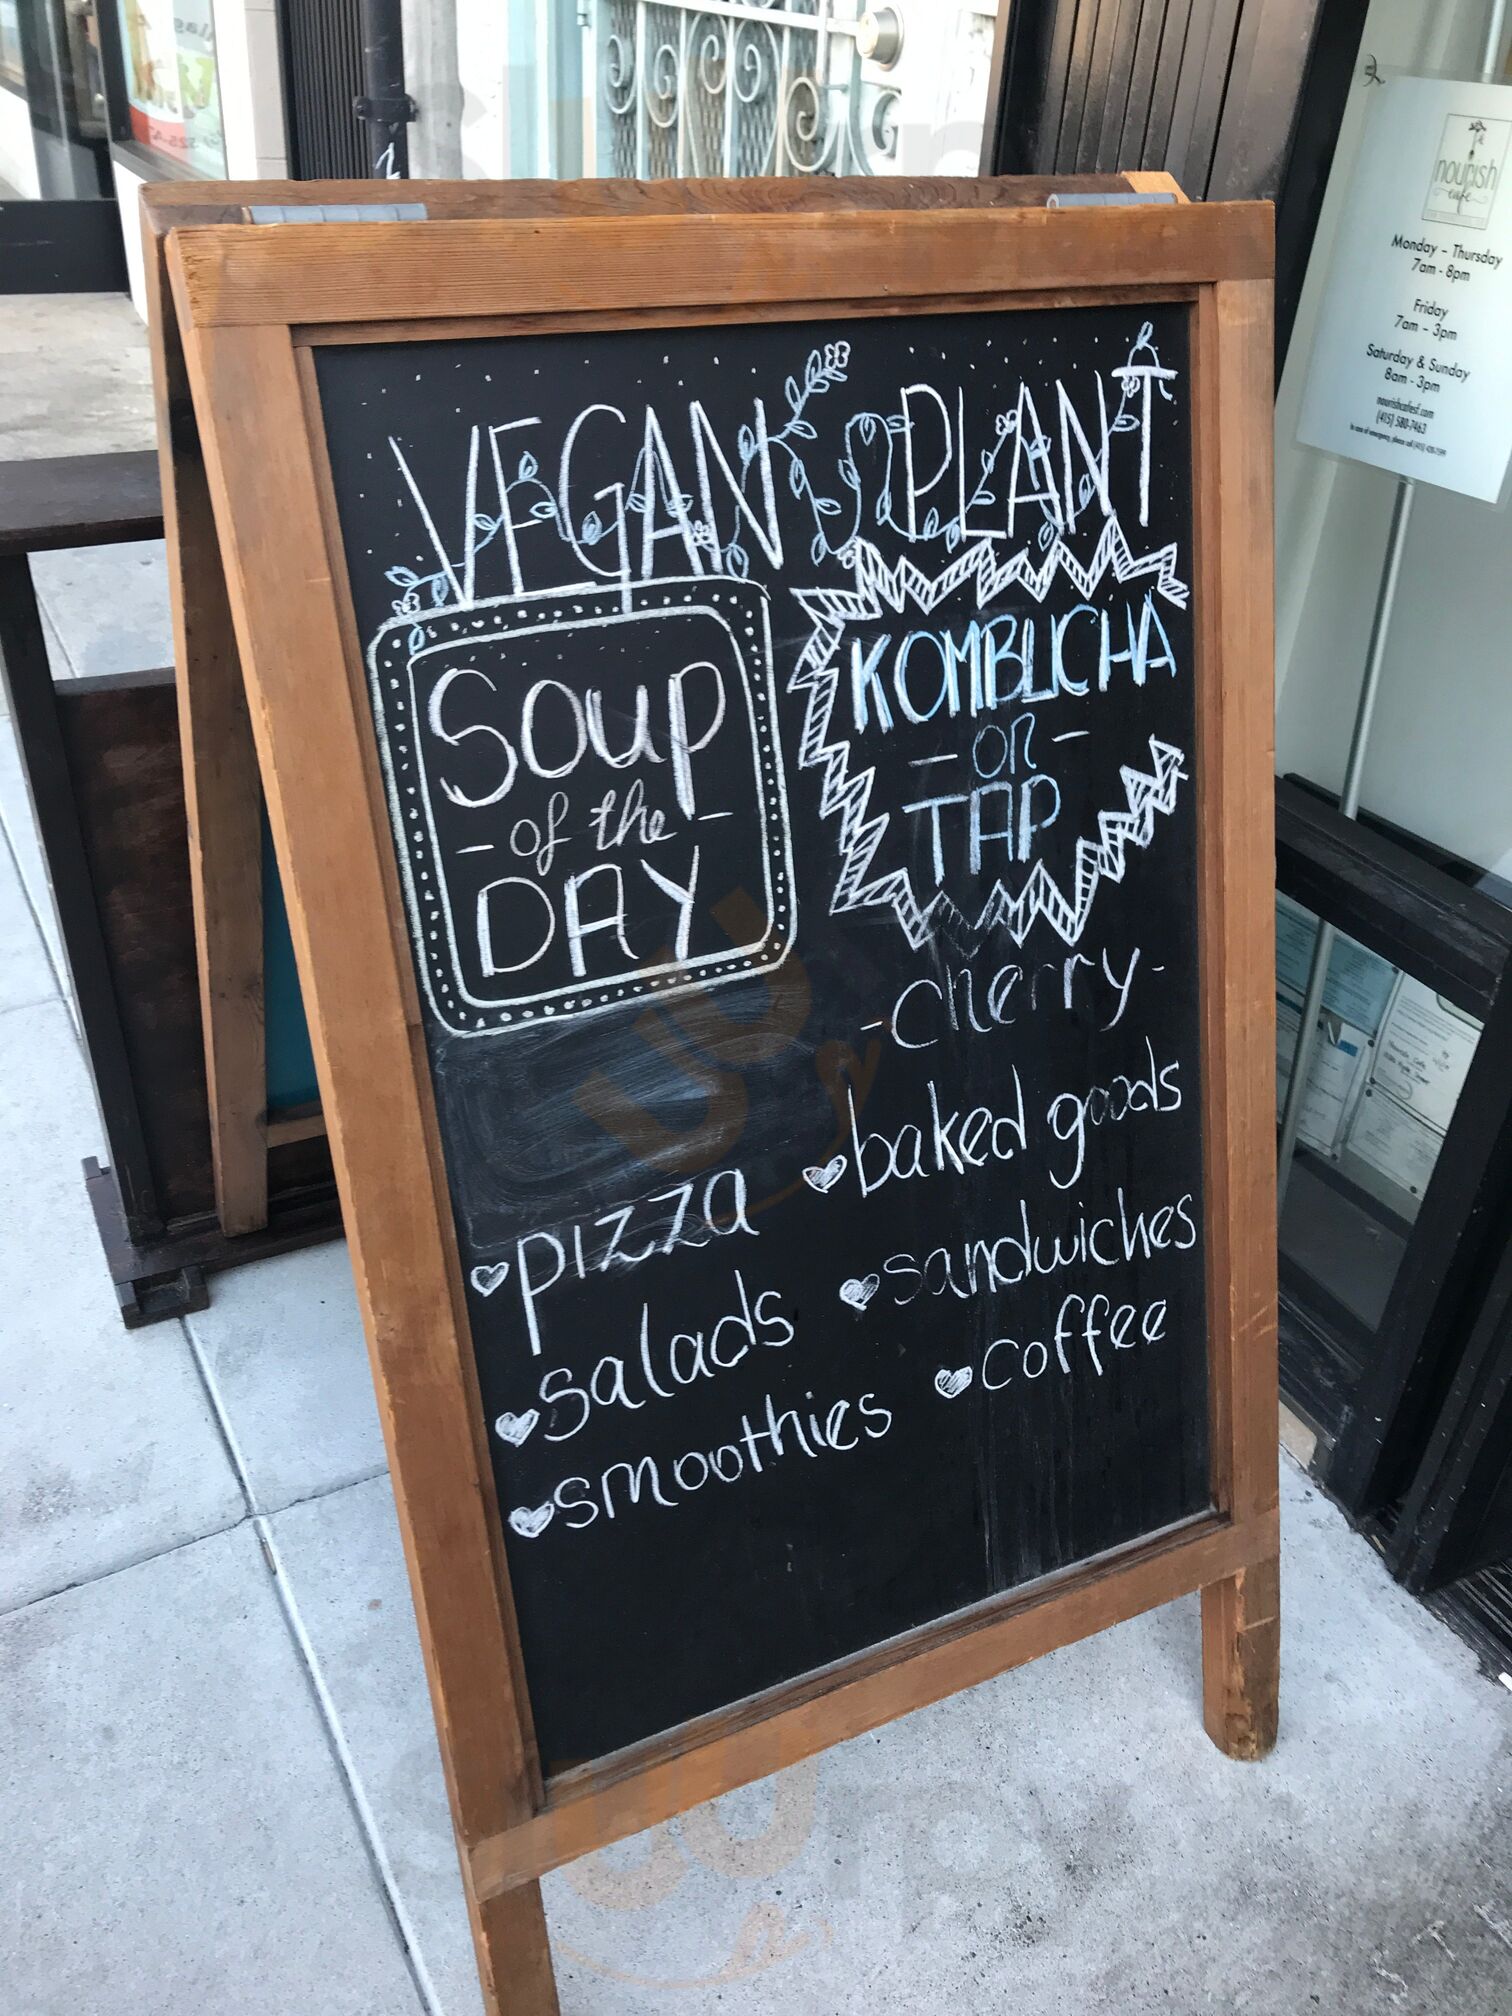 VEGAN PLANT
Soup
- of the -
DAY
KOMBUCHA
- on -
TAP
- cherry -
pizza
salads
smoothies
baked goods
sandwiches
coffee
nourish
cafe
Monday - Thursday
7am - 8pm
Friday
7am - 3pm
Saturday & Sunday
8am - 3pm
nourishcafesf.com
(415) 580-7463